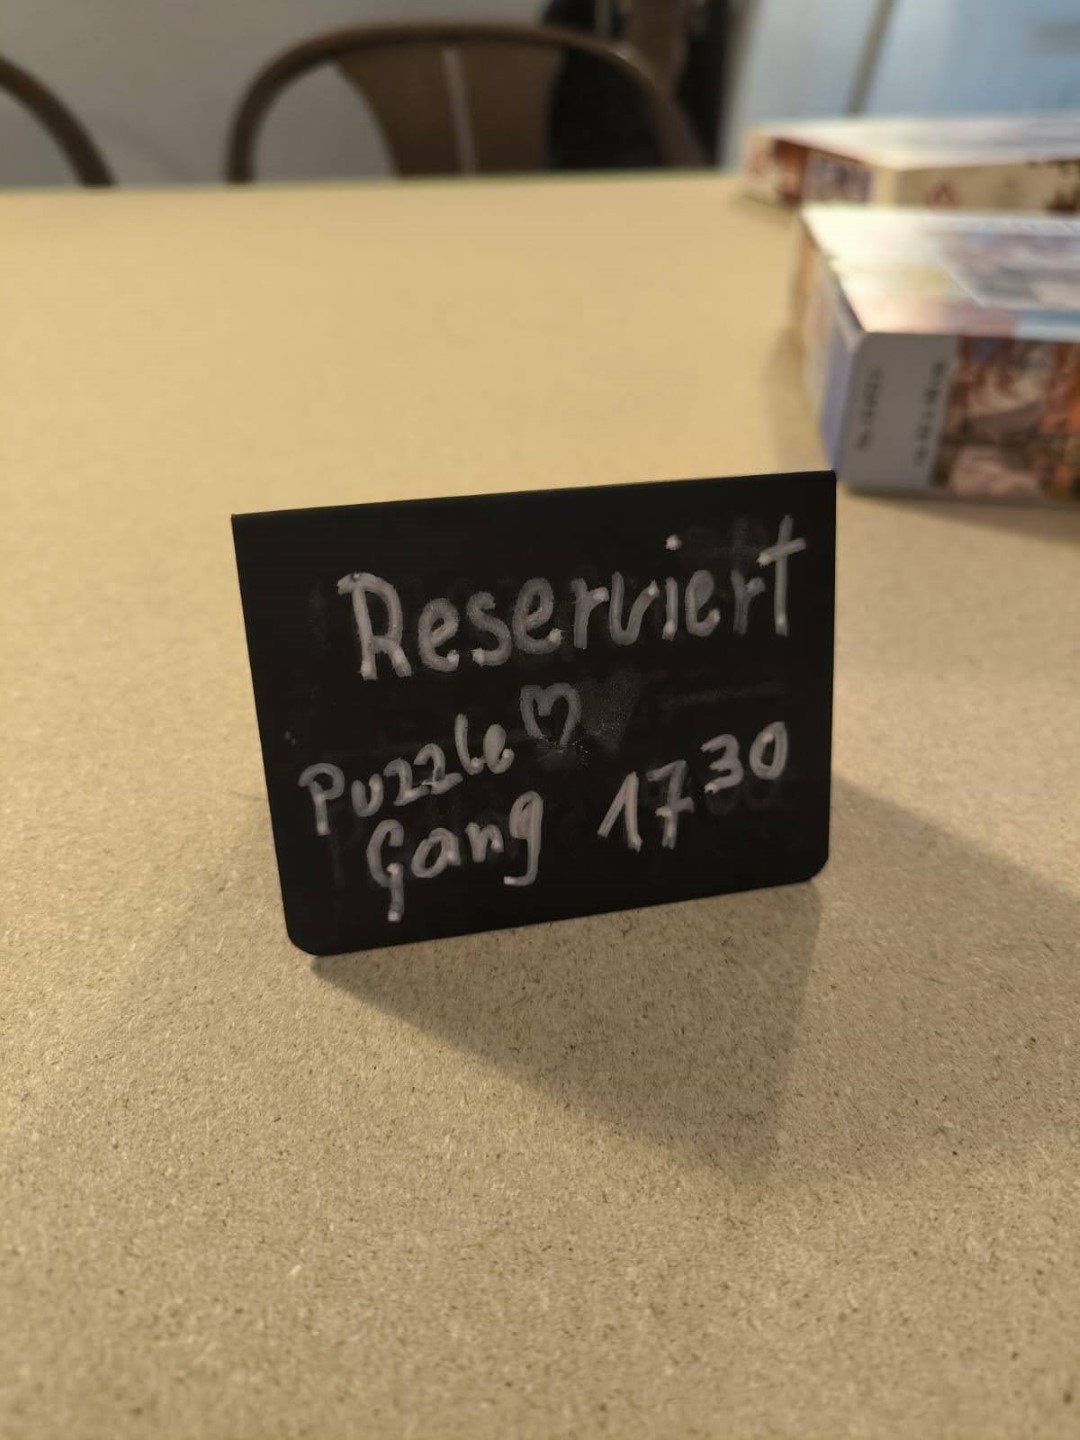 Reserviert
Puzzle ♡
Gang 17³⁰